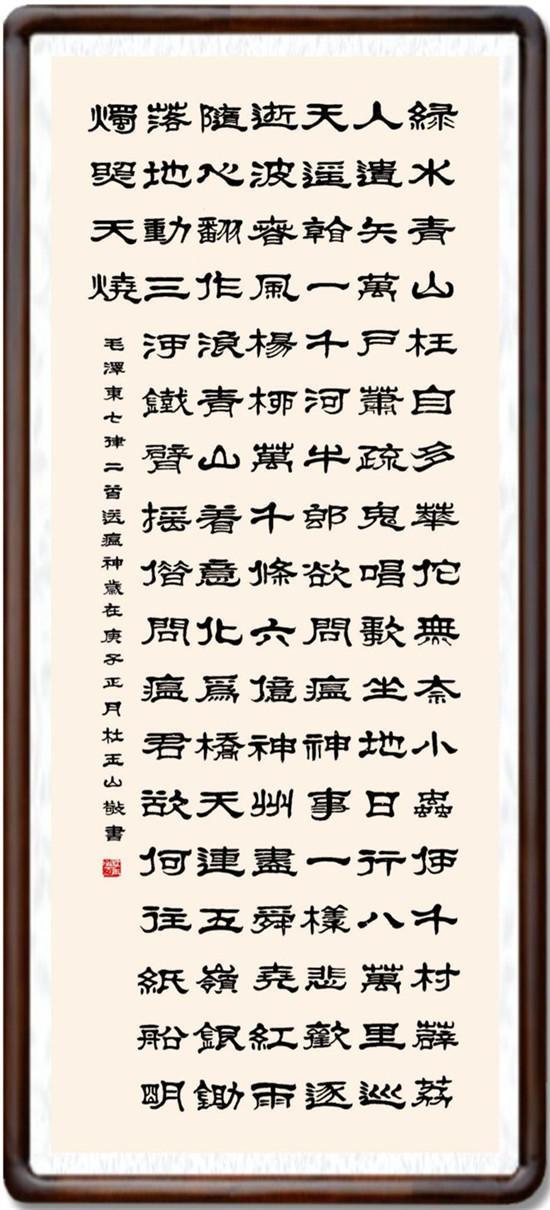 緑水青山枉自多華佗無奈小蟲伊千村薜荔
人遺矢萬戶蕭疏鬼唱歌坐地日行八萬里巡
天遥看一千河牛郎欲問瘟神事一樣悲歡逐
逝波春風楊柳萬千條六億神州盡舜堯紅雨
隨心翻作浪青山着意化爲橋天連五嶺銀鋤
落地動三河鐵臂摇借問瘟君欲何往紙船明
燭照天燒
毛澤東七律二首送瘟神歲在庚子正月杜玉山敬書